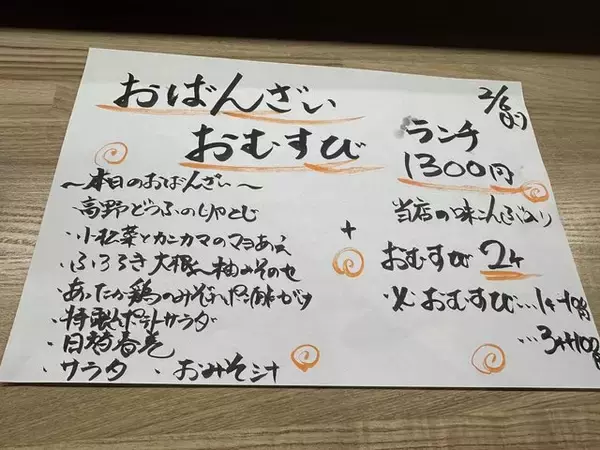 おばんざい
おむすび
2/6
ランチ
1300円
〜本日のおばんざい〜
・高野どうふの
・小松菜とカニカマのマヨあえ
・ふろふき大根〜柚みそのせ
・あったか鶏のみぞれポン酢がけ
・特製ポテトサラダ
・目鯛春巻
・サラダ ・おみそ汁
+
当店の味こんぶ入り
おむすび 2ヶ
※おむすび…1ヶ
…3ヶ